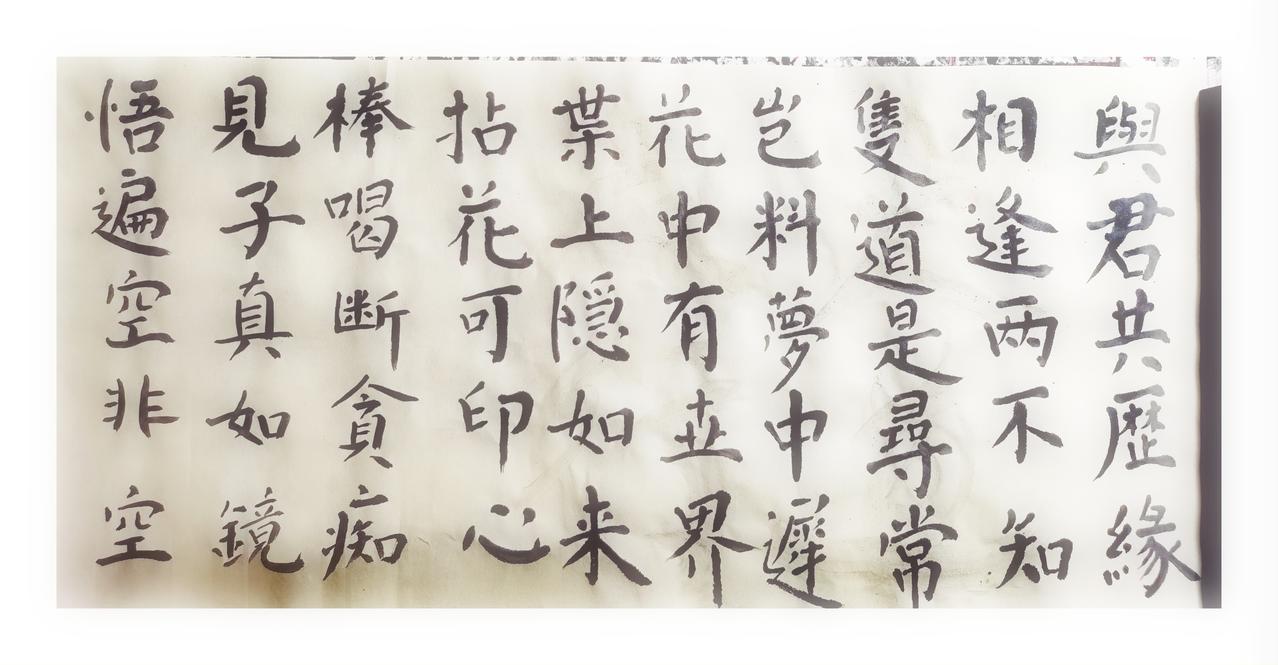 與君共歴緣
相逢两不知
隻道是尋常
岂料夢中遲
花中有世界
葉上隠如来
拈花可印心
棒喝断貪痴
見子真如鏡
悟遍空非空